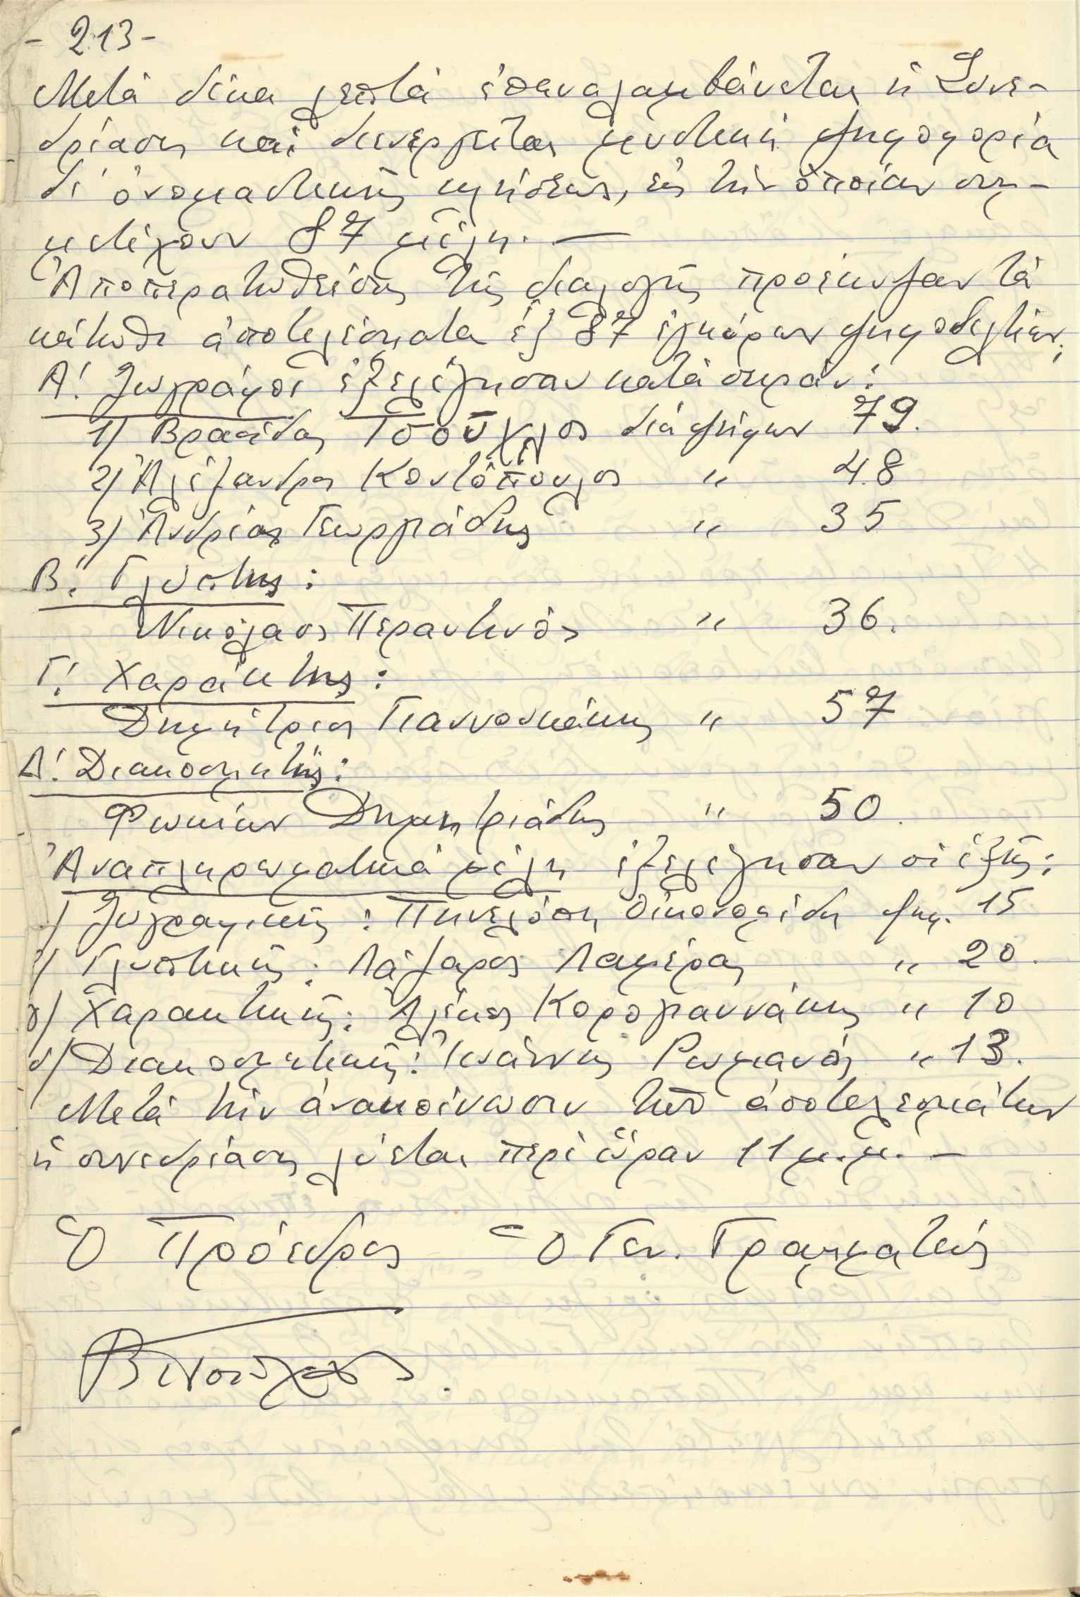 - 213 -
Μετὰ δέκα λεπτὰ ἐπαναλαμβάνεται ἡ Συνε-
δρίασις καὶ διενεργεῖται μυστικὴ ψηφοφορία
δι' ὀνομαστικῆς κλήσεως, εἰς τὴν ὁποίαν συμ-
μετέχουν 87 μέλη. —
Ἀποπερατωθείσης τῆς διαλογῆς προέκυψαν τὰ
κάτωθι ἀποτελέσματα ἐξ 87 ἐγκύρων ψηφοδελτίων:
Α! Ζωγράφοι ἐξελέγησαν κατὰ σειράν:
1) Βρασίδας Τσούχλος διὰ ψήφων 79.
2) Ἀλέξανδρος Κοντόπουλος " 48
3) Ἀνδρέας Γεωργιάδης " 35
Β! Γλύπτης:
Νικόλαος Περαντινός " 36.
Γ! Χαράκτης:
Δημήτριος Γιαννουκάκης " 57
Δ! Διακοσμητής:
Φωκίων Δημητριάδης " 50.
Ἀναπληρωματικὰ μέλη ἐξελέγησαν οἱ ἑξῆς:
) Ζωγραφικῆς: Πηνελόπη Οἰκονομίδη ψηφ. 15
) Γλυπτικῆς: Λάζαρος Λαμέρας " 20.
γ) Χαρακτικῆς: Ἀλέκος Κορογιαννάκης " 10
δ) Διακοσμητικῆς: Ἰωάννης Ρωμανός " 13.
Μετὰ τὴν ἀνακοίνωσιν τῶν ἀποτελεσμάτων
ἡ συνεδρίασις λύεται περὶ ὥραν 11 μ.μ. —
Ὁ Πρόεδρος Ὁ Γεν. Γραμματεύς